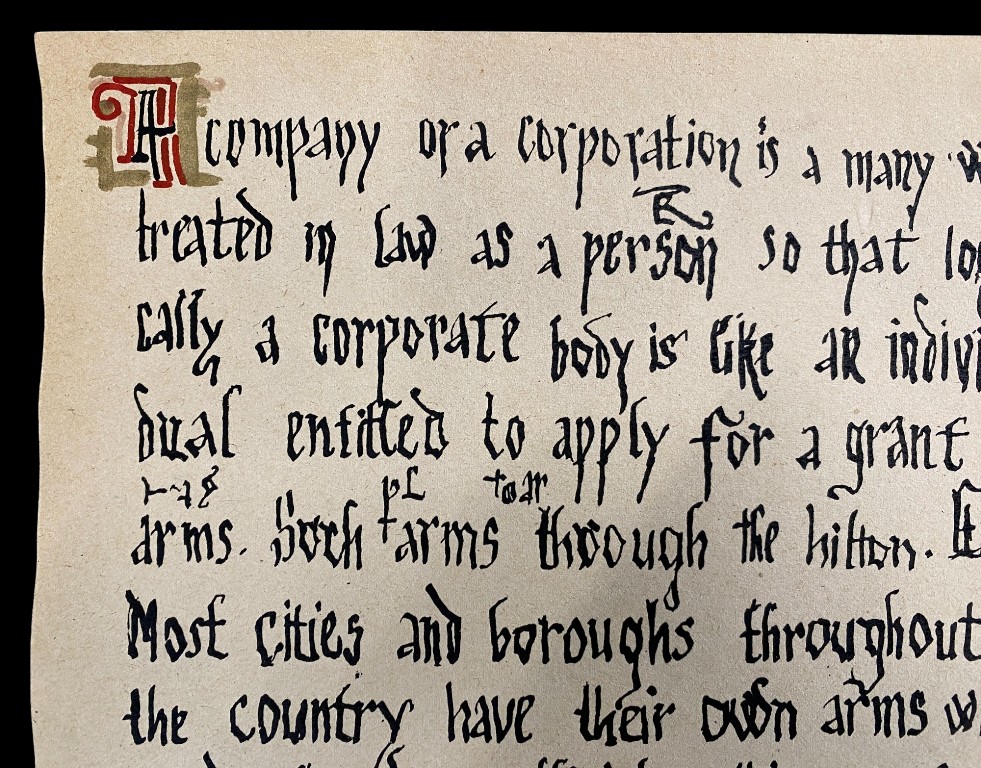 A company or a corporation is a many w
treated in law as a person so that lo
cally a corporate body is like an indivi
dual entitled to apply for a grant
arms. Such arms through the hilton.
Most cities and boroughs throughout
the country have their own arms w